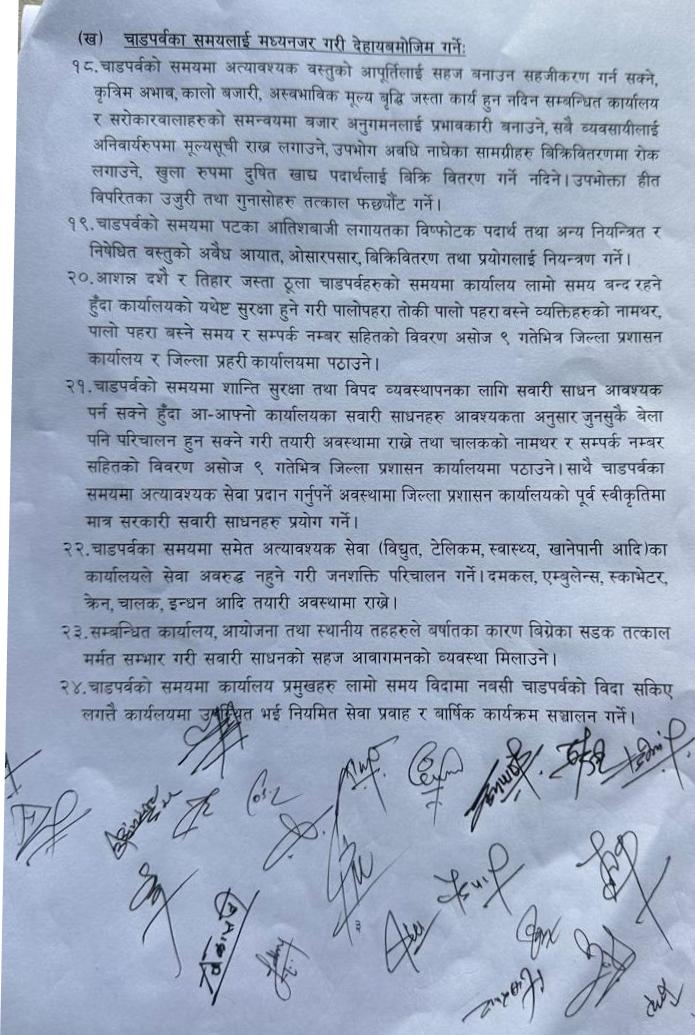 (ख) चाडपर्वका समयलाई मध्यनजर गरी देहायबमोजिम गर्ने:
१८.चाडपर्वको समयमा अत्यावश्यक वस्तुको आपूर्तिलाई सहज बनाउन सहजीकरण गर्न सक्ने,
कृत्रिम अभाव, कालो बजारी, अस्वभाविक मूल्य बृद्धि जस्ता कार्य हुन नदिन सम्बन्धित कार्यालय
र सरोकारवालाहरुको समन्वयमा बजार अनुगमनलाई प्रभावकारी बनाउने, सबै व्यवसायीलाई
अनिवार्यरुपमा मूल्यसूची राख्न लगाउने, उपभोग अवधि नाघेका सामग्रीहरु बिक्रिवितरणमा रोक
लगाउने, खुला रुपमा दुषित खाद्य पदार्थलाई बिक्रि वितरण गर्ने नदिने। उपभोक्ता हीत
विपरितका उजुरी तथा गुनासोहरु तत्काल फछर्यौट गर्ने।
१९.चाडपर्वको समयमा पटका आतिशबाजी लगायतका विष्फोटक पदार्थ तथा अन्य नियन्त्रित र
निषेधित वस्तुको अबैध आयात, ओसारपसार, बिक्रिवितरण तथा प्रयोगलाई नियन्त्रण गर्ने।
२०.आशन्न दशै र तिहार जस्ता ठूला चाडपर्वहरुको समयमा कार्यालय लामो समय बन्द रहने
हुँदा कार्यालयको यथेष्ट सुरक्षा हुने गरी पालोपहरा तोकी पालो पहरा वस्ने व्यक्तिहरुको नामथर,
पालो पहरा बस्ने समय र सम्पर्क नम्बर सहितको विवरण असोज ९ गतेभित्र जिल्ला प्रशासन
कार्यालय र जिल्ला प्रहरी कार्यालयमा पठाउने।
२१.चाडपर्वको समयमा शान्ति सुरक्षा तथा विपद व्यवस्थापनका लागि सवारी साधन आवश्यक
पर्न सक्ने हुँदा आ-आफ्नो कार्यालयका सवारी साधनहरु आवश्यकता अनुसार जुनसुकै बेला
पनि परिचालन हुन सक्ने गरी तयारी अवस्थामा राख्ने तथा चालकको नामथर र सम्पर्क नम्बर
सहितको विवरण असोज ९ गतेभित्र जिल्ला प्रशासन कार्यालयमा पठाउने। साथै चाडपर्वका
समयमा अत्यावश्यक सेवा प्रदान गर्नुपर्ने अवस्थामा जिल्ला प्रशासन कार्यालयको पूर्व स्वीकृतिमा
मात्र सरकारी सवारी साधनहरु प्रयोग गर्ने।
२२.चाडपर्वका समयमा समेत अत्यावश्यक सेवा (विद्युत, टेलिकम, स्वास्थ्य, खानेपानी आदि)का
कार्यालयले सेवा अवरुद्ध नहुने गरी जनशक्ति परिचालन गर्ने। दमकल, एम्बुलेन्स, स्काभेटर,
क्रेन, चालक, इन्धन आदि तयारी अवस्थामा राख्ने।
२३.सम्बन्धित कार्यालय, आयोजना तथा स्थानीय तहहरुले बर्षातका कारण बिग्रेका सडक तत्काल
मर्मत सम्भार गरी सवारी साधनको सहज आवागमनको व्यवस्था मिलाउने।
२४.चाडपर्वको समयमा कार्यालय प्रमुखहरु लामो समय विदामा नबसी चाडपर्वको विदा सकिए
लगत्तै कार्यलयमा उपस्थित भई नियमित सेवा प्रवाह र बार्षिक कार्यक्रम सञ्चालन गर्ने।